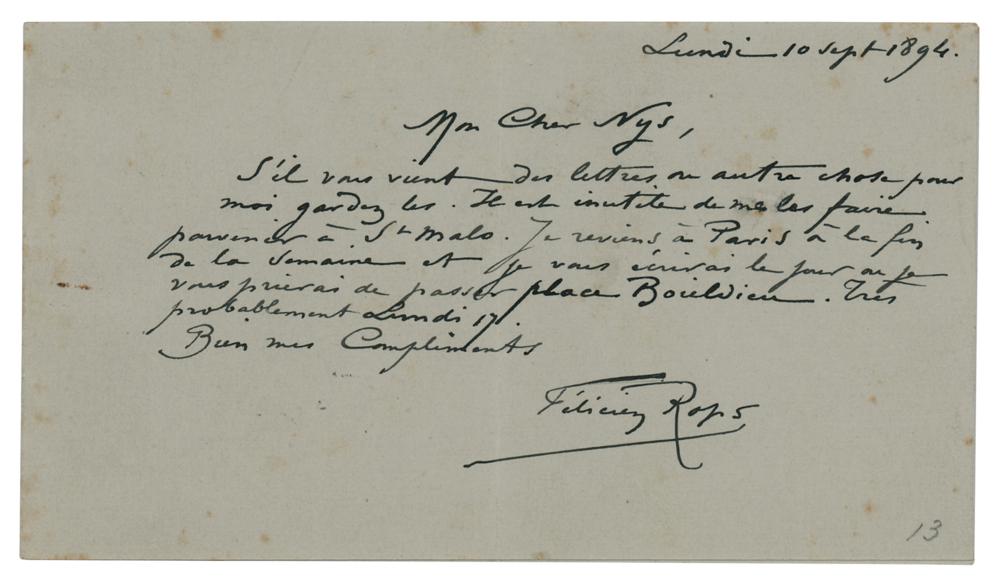 Lundi 10 sept 1894.
Mon Cher Nys,
S'il vous vient des lettres ou autre chose pour
moi gardez les. Il est inutile de me les faire
parvenir à St Malo. Je reviens à Paris à la fin
de la semaine et je vous écrirai le jour ou je
vous prierai de passer place Boieldieu. Très
probablement Lundi 17.
Bien mes Compliments
Félicien Rops
13